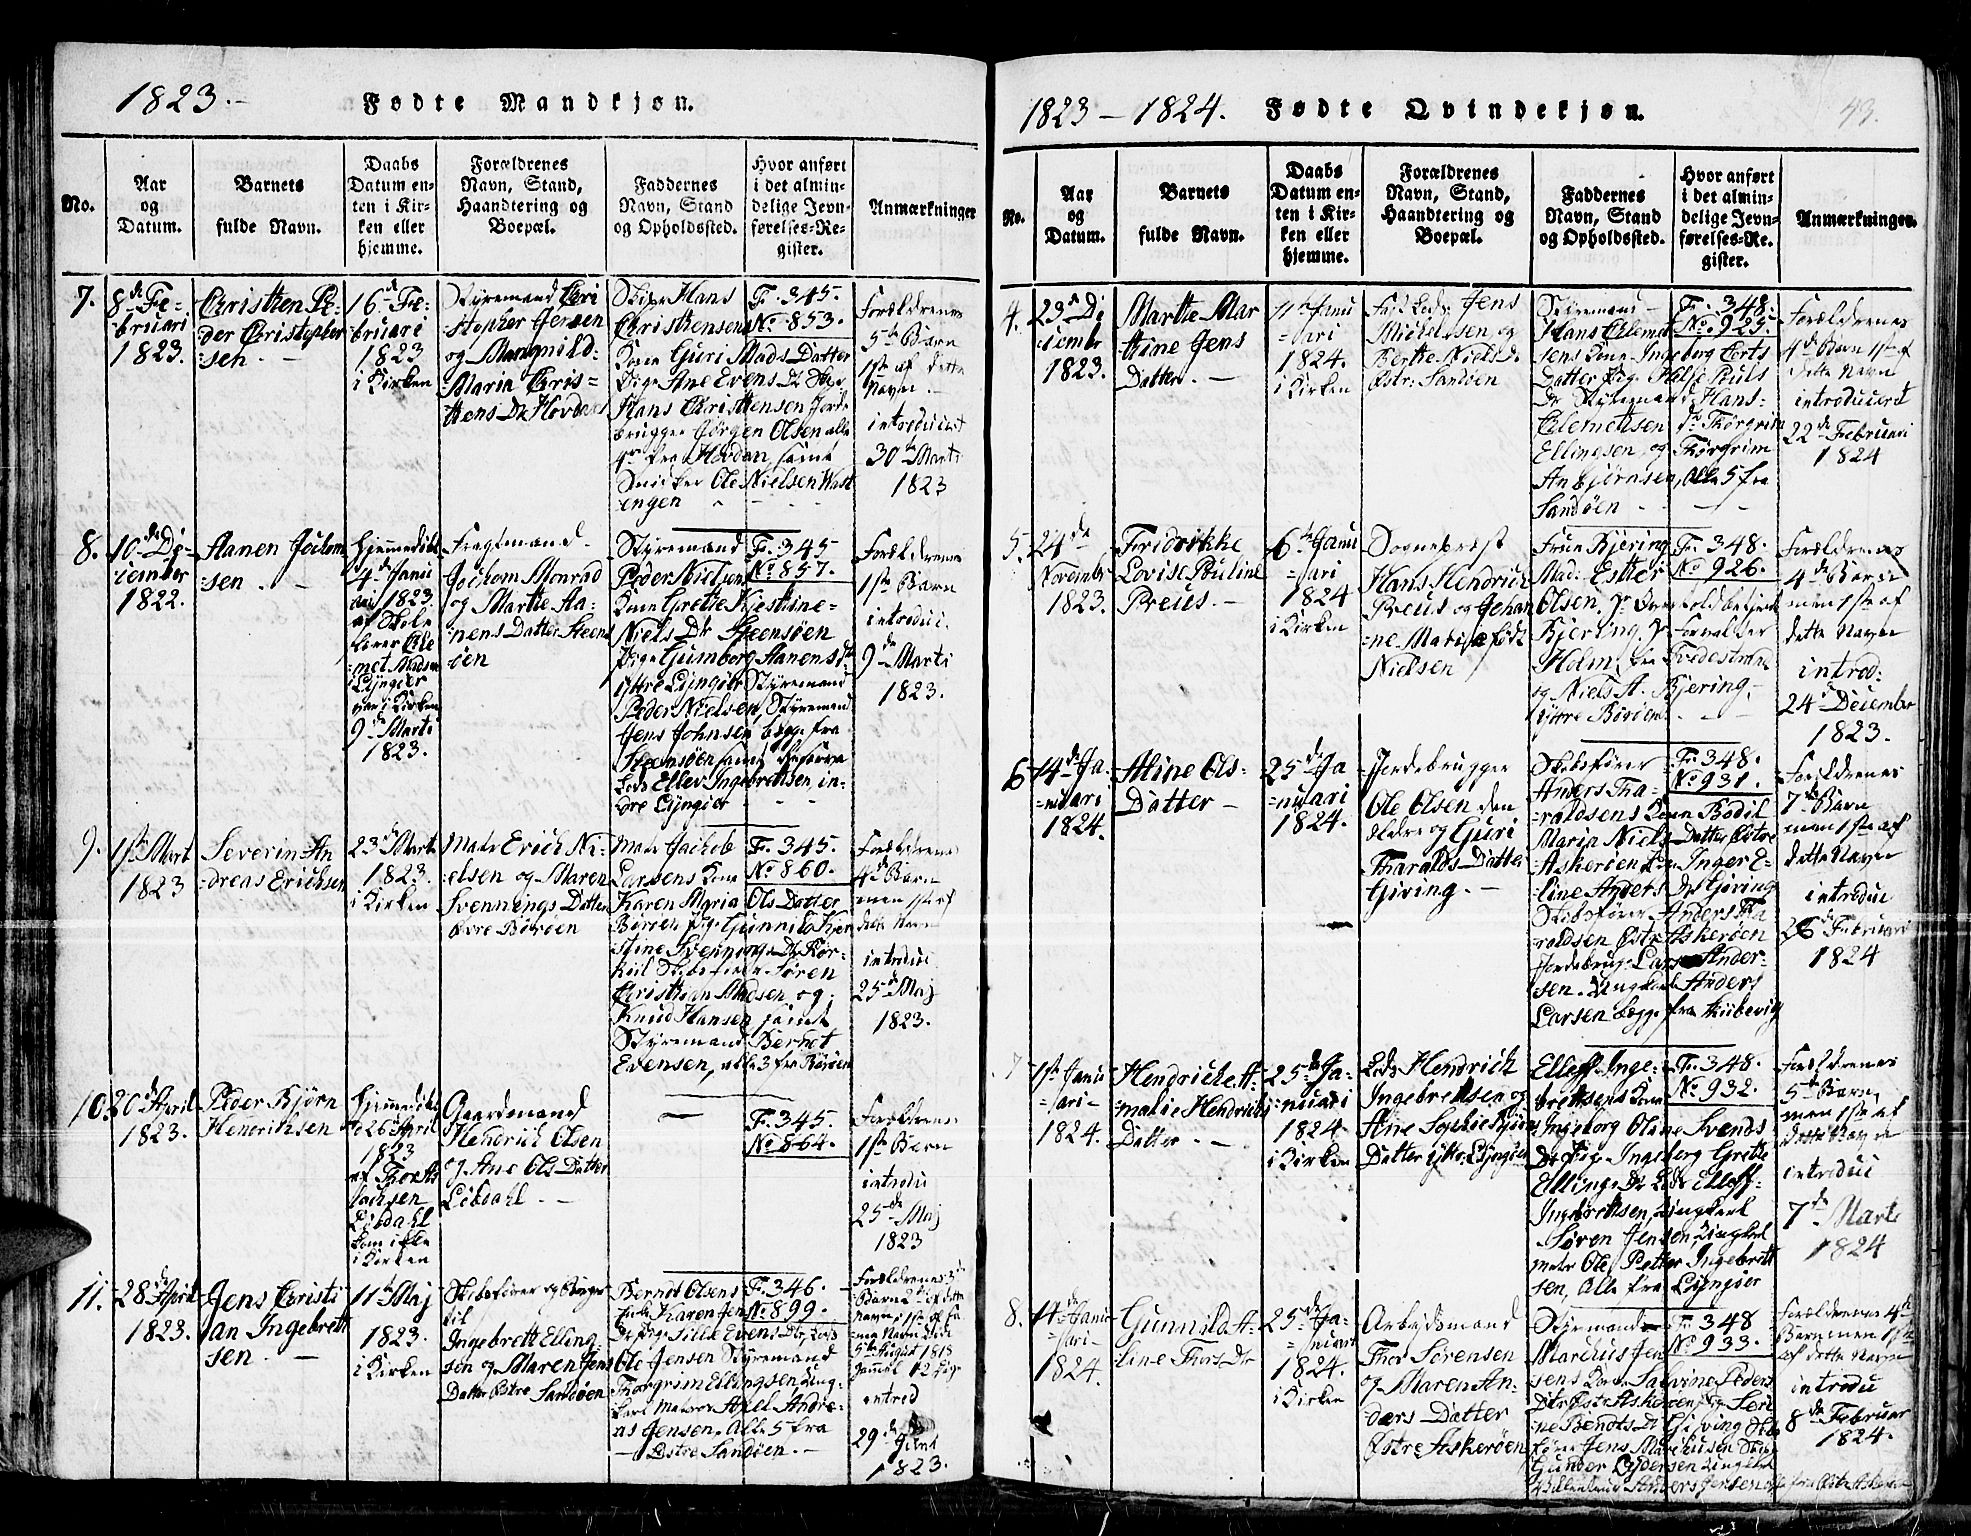 1823.-
Fødte Mandkjøn.
No.
Aar
og
Datum.
Barnets
fulde Navn.
Daabs
Datum en-
ten i Kir-
ken eller
hjemme.
Forældrenes
Navn, Stand,
Haandtering og
Boepæl.
Faddernes
Navn, Stand
og Opholdssted.
Hvor anført
i det almin-
delige Jevn-
førelses-Re-
gister.
Anmærkninger
7.
8de Fe-
bruari
1823.
Christhen Pe-
der Christopher
sen
16de Fe-
bruari
1823
i Kirken
Styremand Chri
stopher Jensen
og Mangnild-
Maria Chris=
thens Dr Hovdan
Skipr Hans
Christhensens
Kone Guri Mads Datter
Pige Ane Evens Dr Skipr
Hans Christhensen Jorde
brugger Jørgen Olsen alle
fra Hovdan samt
Snidker Ole Nielsen West
engen
F. 345.
No 853.
Forældrenes
5te Barn
1ste af dette
Navn
introduceret
30te Marti
1823
8.
10de De-
cember
1822.
Aanen Jochom
sen
Hjemmedøbt
4de Janu
ari 1823
af Skole
lærer Cle
met Madsen
Lyngør
var i Kirken
9de Marti
1823.
Fragtmand
Jochom Monrad
og Marthe Aa-
nens Datter Steens
øen
Styremand
Peder Nielsens
Kone Grethe Kjestine
Niels Dr Steensøen
Pige Gumborg Aanens Dr
ytre Lyngør Styremand
Peder Nielsen, Styremand
Jens Johnsen begge fra
Steensøen samt
Lods Ellev Ingebrethsen in-
dre Lyngør
F. 345
No 857.
Forældrenes
1ste Barn
introduci
9de Marti
1823.
9.
1ste Mart
1823
Severin An
dreas Erichsen
23de Mart
1823.
i Kirken
Matr Erich Ni-
elsen og Maren
Svennings Datter
Øvre Børøen
Matr Jachob
Larsens Kone
Karen Maria Ols Datter
Børøen Pige Gunnild Kjer
stine Svennings Dr
Skibsfører Søren
Christhian Madsen og
Knud Hansen samt
Styremand Bernot
Evensen, alle 3 fra Børøen
F. 345.
No 860.
Forældrenes
4de Barn
men 1ste af
dette Navn
introduci
25de Maj
1823.
10.
20de April
1823.
Peder Bjørn
Henrichsen
Hjemmedøbt
26 April
1823
af Thor
Jachsen
Lødahl
kom ikke
i Kirken
Gaardmand
Hendrich Olsen
og Ane Ols Datter
Lødahl
F. 345.
No 864.
Forældrenes
1ste Barn
introdu
25de Maj
1823
11.
28de April
1823.
Jens Christi
an Ingebreth
sen
11te Maj
1823.
i Kirken
Skibsfører og
Ingebreth Elling
sen og Maren Jens
Datter Østre Sandøen
Berndt Olsens
Enke Karen Jens
Dr Pige Sille Evens Dr Lods
Ole Jensen Styremand
Thorgrim Ellingsen Ung-
karl Matros Axel Andre-
as Jensen. Alle 5 fra
Østre Sandøen.
F. 346
No 899.
Forældrenes 3de
Barn 2det af dette
Navn 1ste af
Navn døde
5te August 1818
introd
29de Juni
1823.
1823 - 1824.
Fødte Qvindekjøn.
43.
No.
Aar
og
Datum.
Barnets
fulde Navn.
Daabs
Datum en-
ten i Kir-
ken eller
hjemme.
Forældrenes
Navn, Stand,
Haandtering og
Boepæl.
Faddernes
Navn, Stand
og Opholdssted.
Hvor anført
i det almin-
delige Jevn-
førelses-Re-
gister.
Anmærkninger.
4.
23de De
cembr
1823.
Marthe Mar
thine Jens
Datter
11te Janu
ari
1824.
i Kirken
Jens
Michelsen og
Berthe Niels Dr
Østr: Sandøen
Styremand
Hans Clemet
sens Kone Ingeborg Eerts
Datter Pig: Helje Pouls
Dr Styremand Hans
Clemetsen do Thorgrim
Ellingsen og Thorgrim
Anbjørnsen, Alle 5 fra
Sandøen
F. 348
No 925
Forældrenes
4de Barn 1ste af
dette Navn
introduceret
22de Februari
1824
5.
24de
November
1823.
Fridrikke
Lovise Pouline
Preus.
6te Janu
ari
1824
i Kirken
Sogneprest
Hans Hendrich
Preus og Johan
ne Marie født
Nielsen
Fruen Kjering
Mad: Esther
Olsen, Hr Overtoldbetjent
Kjering, Hr Forvalter
Holm, fra Tvedestrand
og Niels A. Kjering,
ytre Børøen
F. 348.
No 926.
Forældrenes
4de Barn
men 1ste af
dette Navn
introd:
24de December
1823.
6
14de Ja-
nuari
1824.
Aline Ols-
Datter
25de Ja
nuari
1824.
Jordebrugger
Ole Olsen den
Eldre og Guri
Tharalds Datter
Gjøving.
Skibsfører
Anders Tha-
raldsens Kone Bodil
Maria Niels Datter Østre
Askerøen Inger E-
line Anders Dr Gjøving
Skibsfører Anders Tha
raldsen Østr: Askerøen
Jordebrug: Lars Ander-
sen. Ungkarl Anders
Larsen begge fra
F. 348.
No 931.
Forældrenes
7de Barn
men 1ste af
dette Navn
introduci
26de Februari
1824
7
1ste Janu
ari
1824.
Hendriche A-
malie Hendrichs
Datter
25de Ja-
nuari
1824
i Kirken
Lods Hendrich
Ingebrethsen og
Aline Sophie
Datter ytr: Lyngør
Elleff Inge-
brethsens Kone
Ingeborg Oline Svends
Dr Pig: Ingeborg Grethe
Ellings Dr Lods Elleff
Ingebrethsen, Ungkarl
Søren Jensen, Ungkarl
matr Ole Petter Ingebreth
sen, Alle fra Lyngør
F. 348.
No 932.
Forældrenes
5te Barn
men 1ste af
dette Navn
introduci
7de Marti
1824
8.
14de Janu
ari
1824.
Gunnild A-
line Thors Dr
25de Ja-
nuari
1824.
i Kirken
Arbejdsmand
Thor Sørensen
og Maren An-
ders Datter
Østre Askerøen
Styrmand
Marcius Jen
sens Kone Salvine Peders
Dr Østr: Askerøen Pig Seri
ne Berndts Dr Gjøving
Jens Marchusen
Gunder Gydersen Ungkarl
Anders Jensen
F. 348
No 933.
Forældrenes 4de
Barn men 1ste
af dette Navn
introdu
8de Februar
1824.